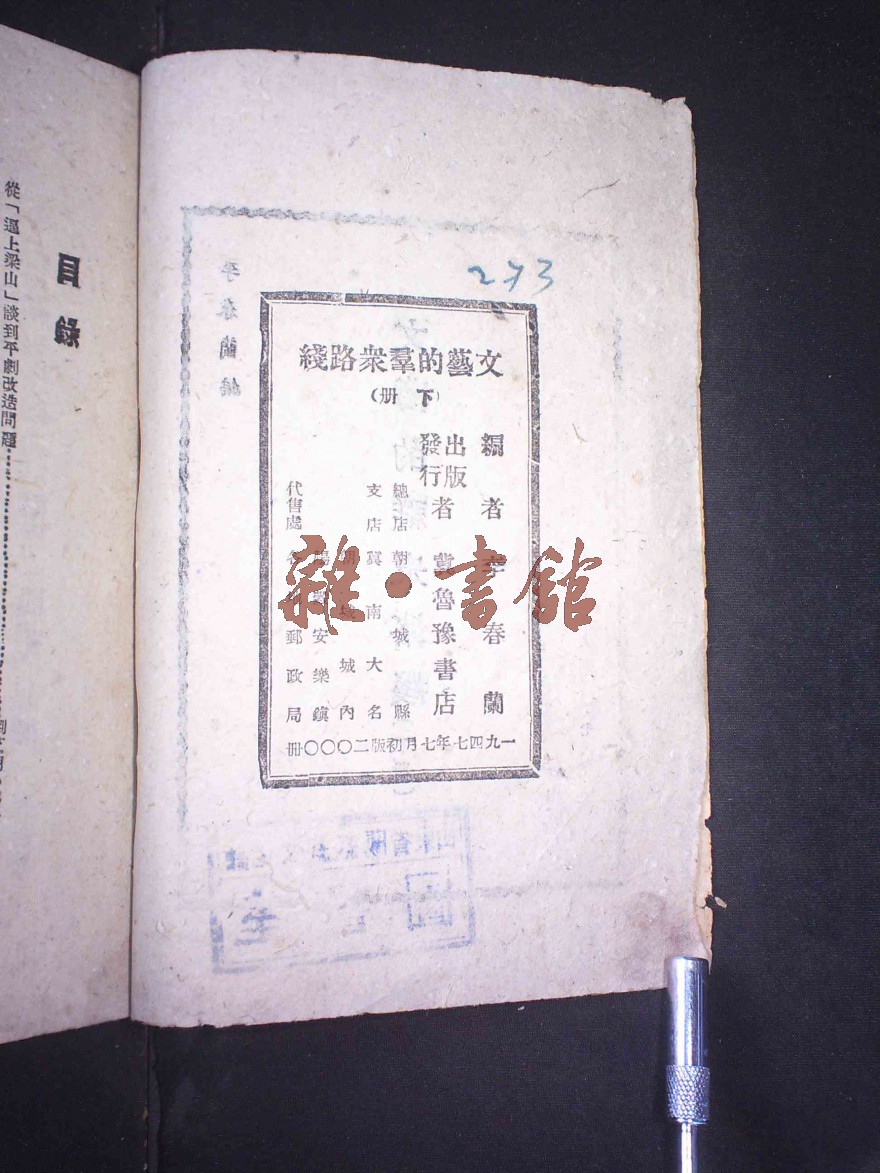 273
文藝的羣衆路綫
（下册）
編者 李春蘭
出版
發行者 冀魯豫書店
總店 朝城縣
支店 冀南大名
朝城城內
陽穀安樂鎮
代售處 各縣郵政局
一九四七年七月初版二〇〇〇册
雜·書館
目錄
從「逼上梁山」談到平劇改造問題